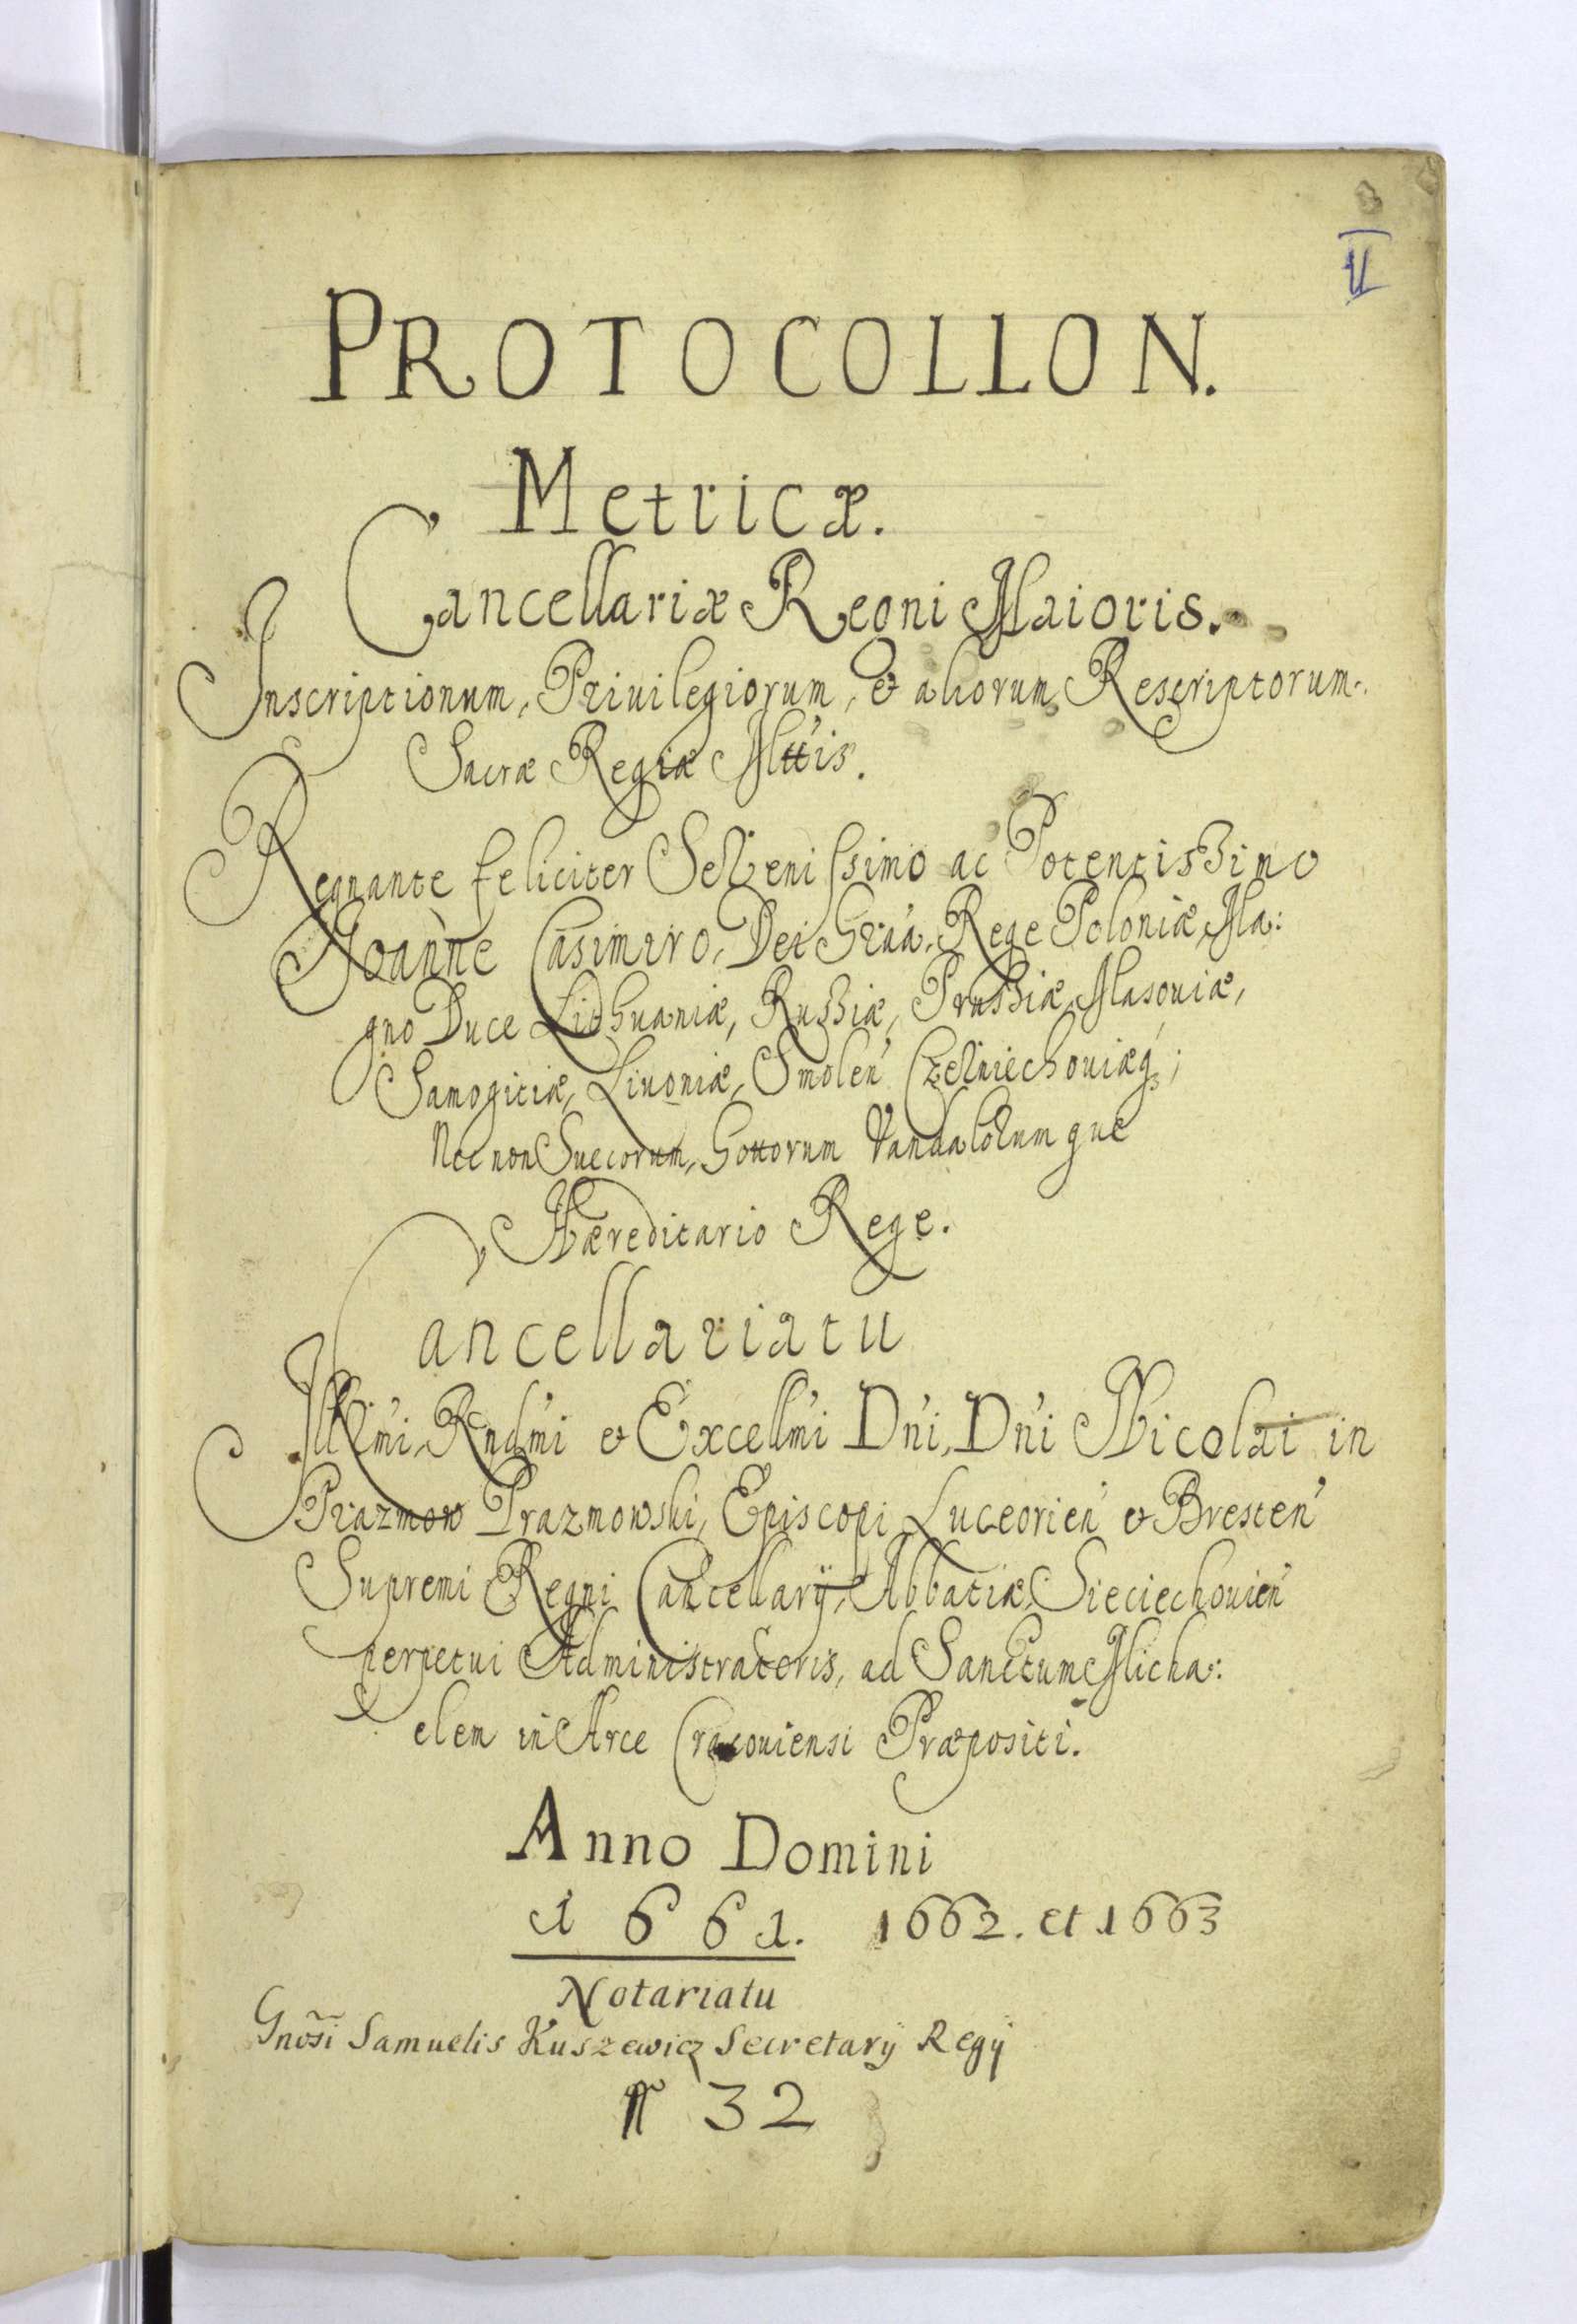 II
PROTOCOLLON.
Metricæ.
Cancellariæ Regni Maioris.
Inscriptionum, Priuilegiorum, et aliorum Rescriptorum.
Sacræ Regiæ Mttis.
Regnante feliciter Serenissimo ac Potentissimo
Joanne Casimiro, Dei Graa, Rege Poloniæ, Ma:
gno Duce Lithuaniæ, Russiæ, Prussiæ, Masouiæ,
Samogitiæ, Liuoniæ, Smolen' Czerniechouiæq;
Nec non Suecorum, Gottorum Vandalorumque
Hæreditario Rege.
Cancellariatu
Illmi, Rndmi et Excellmi Dni, Dni Nicolai in
Prazmow Prazmowski, Episcopi Luceorien' et Bresten'
Supremi Regni Cancellarÿ, Abbatiæ Sieciechouien'
perpetui Administratoris, ad Sanctum Micha:
elem in Arce Cracouiensi Præpositi.
Anno Domini
1661. 1662. et 1663
Notariatu
Gnosi Samuelis Kuszewicz Secretarÿ Regÿ
N 32